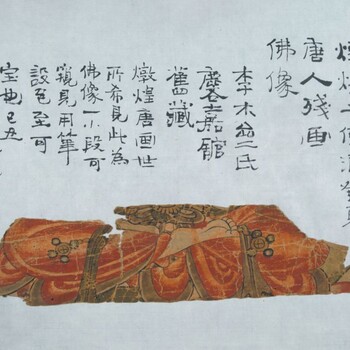 煌千佛洞
唐人殘画
佛像
李木齋氏
麐嘉館
舊藏
燉煌唐画世
所希見此為
佛像一小段可
窺見用筆
設色至可
宝也己丑